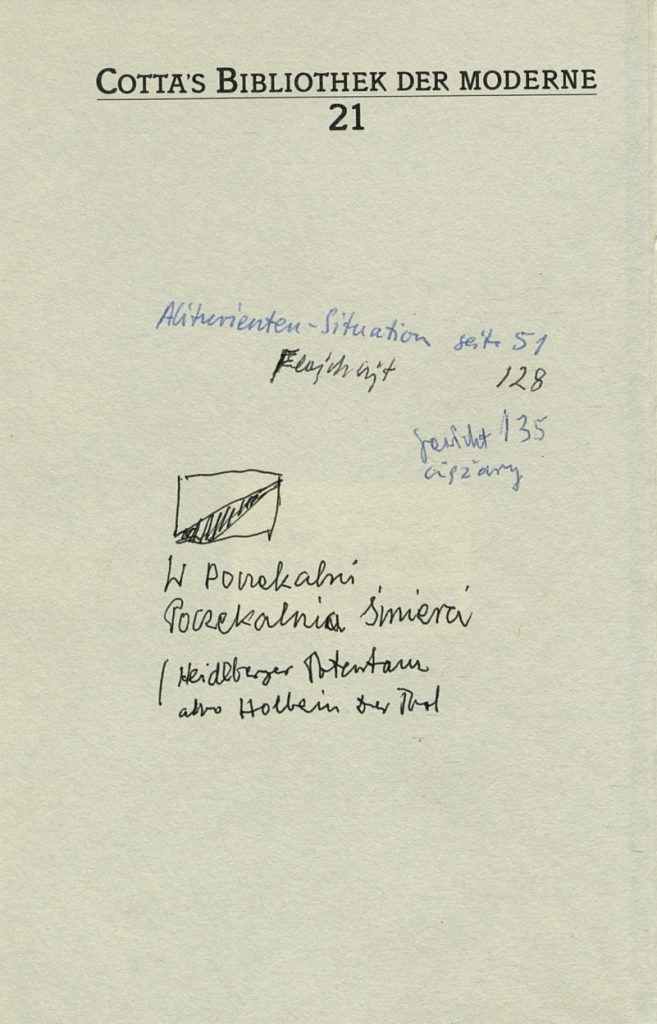 COTTA'S BIBLIOTHEK DER MODERNE
21
Abiturienten-Situation seite 51
128
135
ciężary
W Poczekalni
Poczekalnia Śmierci
(Heidlberger Totentanz
albo Holbein Der Thod